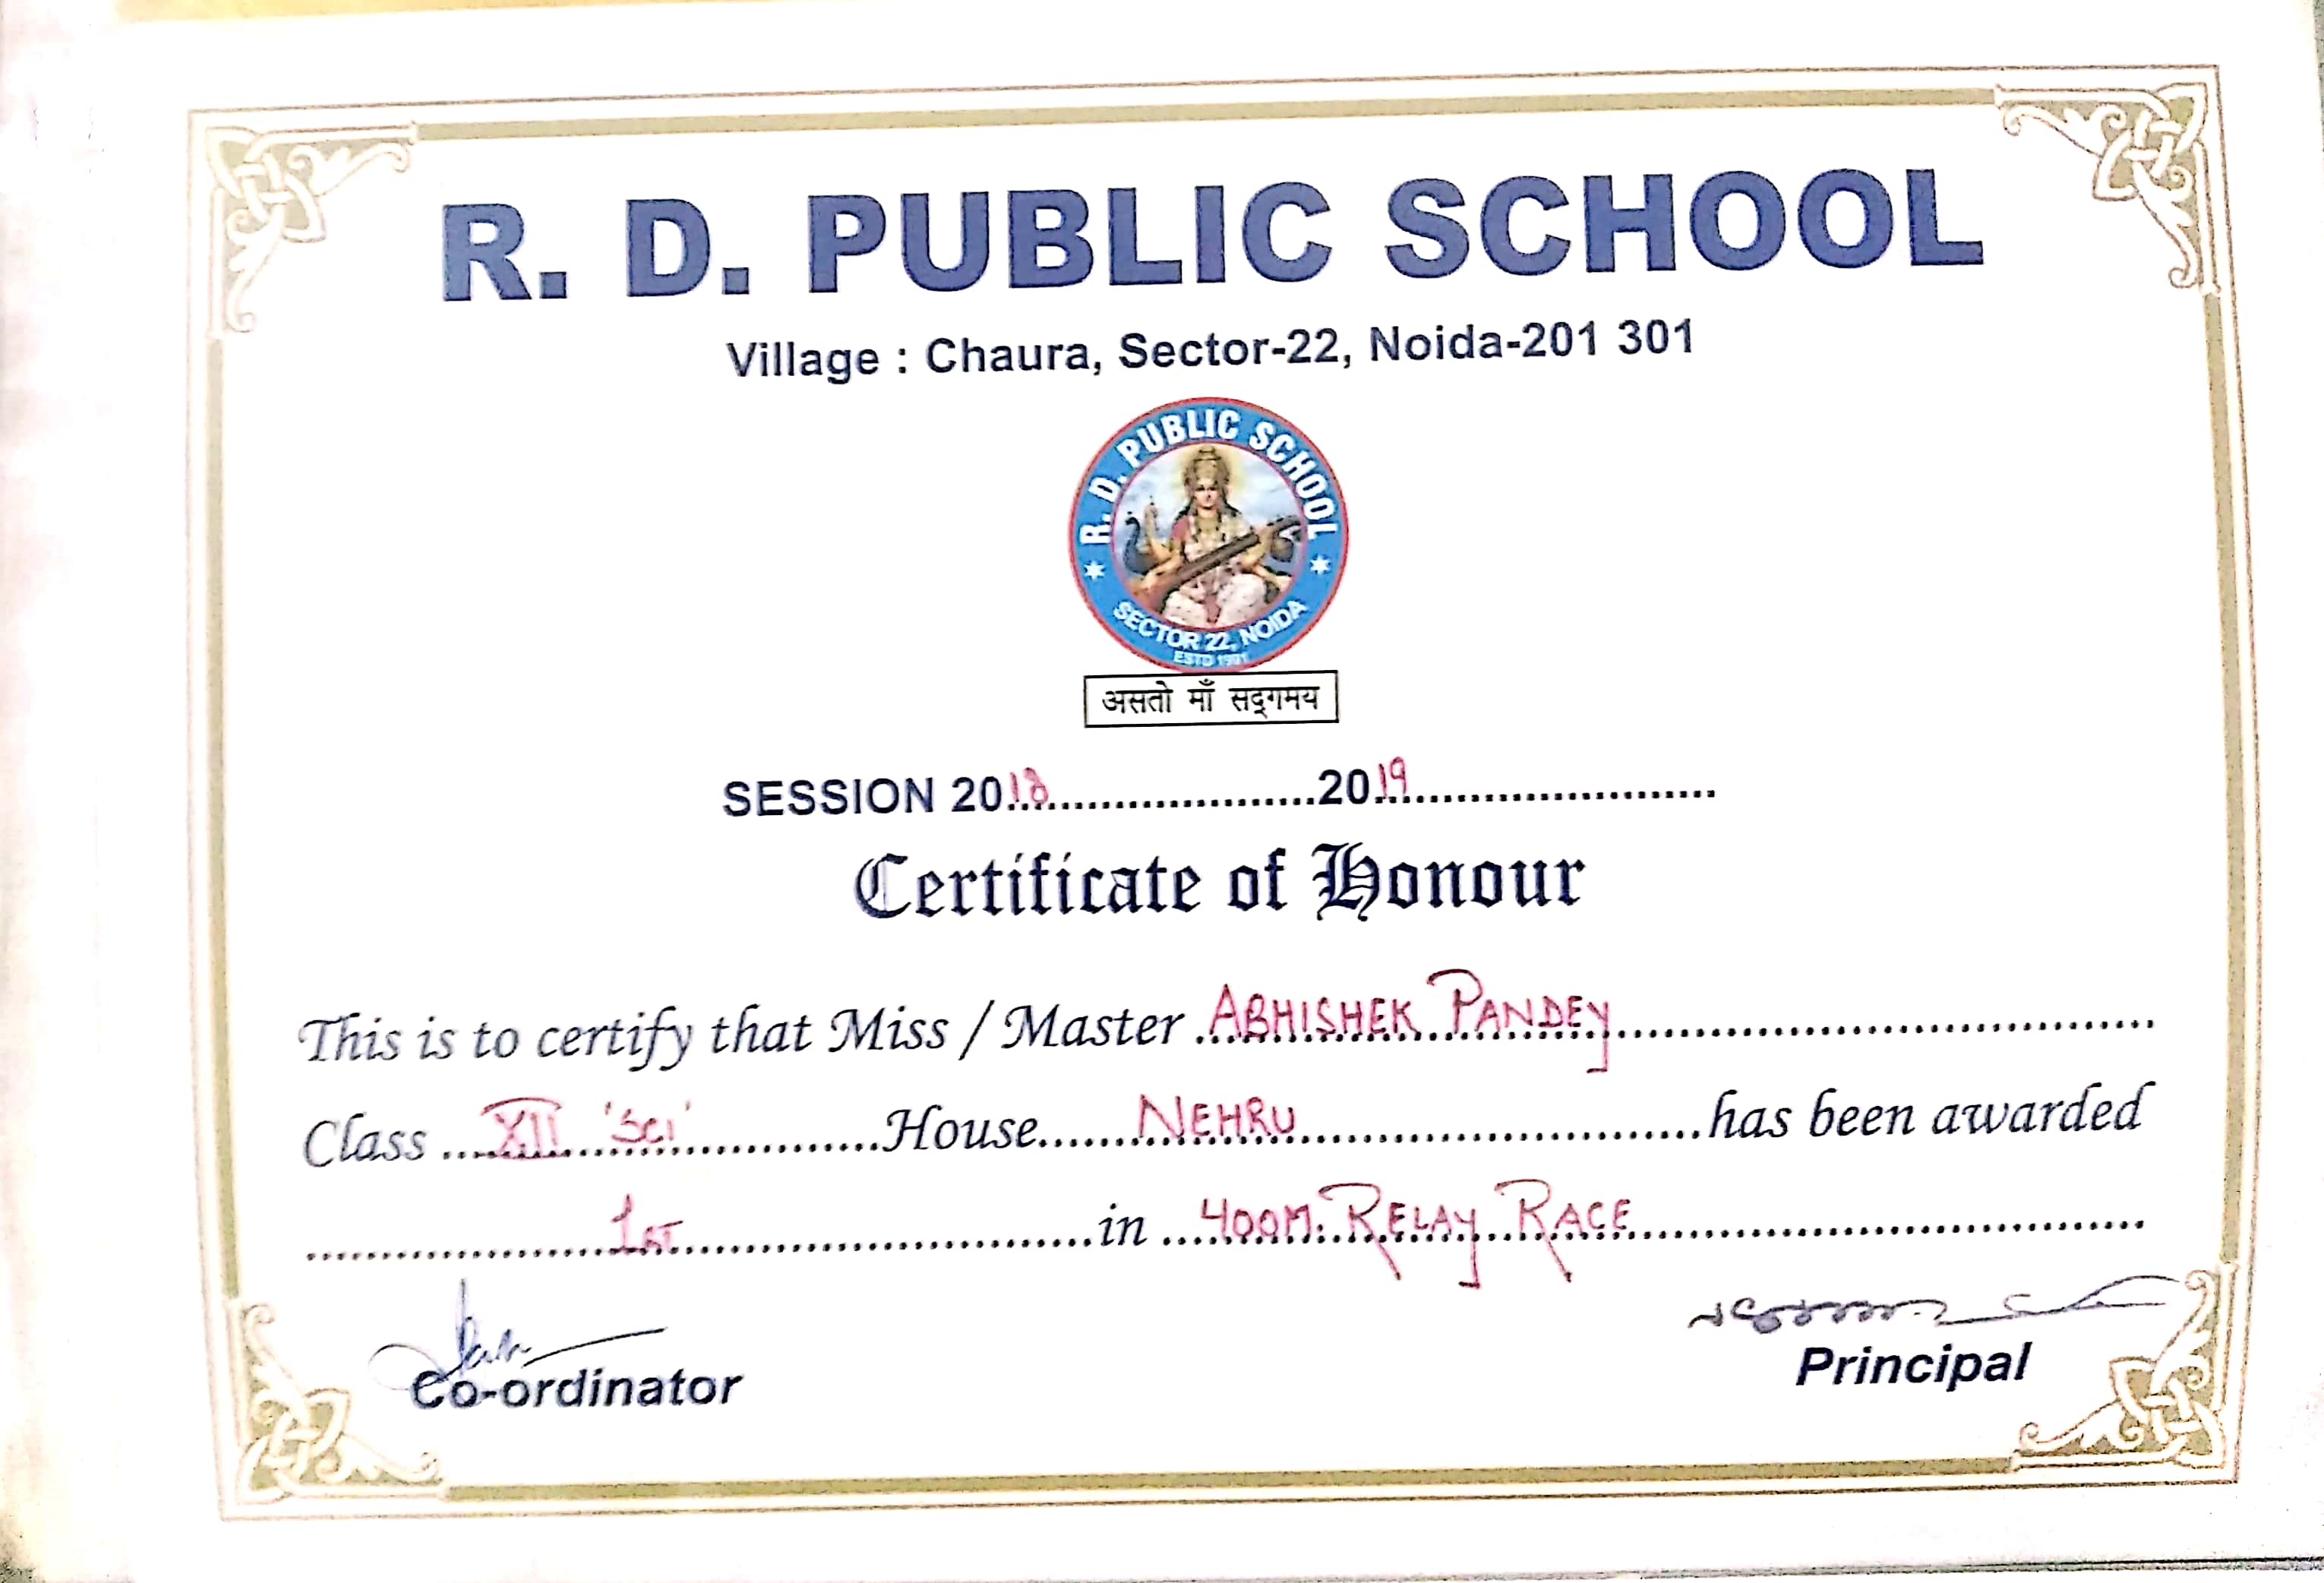 R. D. PUBLIC SCHOOL
Village : Chaura, Sector-22, Noida-201 301
R. D. PUBLIC SCHOOL
SECTOR 22, NOIDA
ESTD 1991
असतो माँ सद्गमय
SESSION 2018 2019
Certificate of Honour
This is to certify that Miss / Master ABHISHEK PANDEY
Class XII 'Sci' House NEHRU has been awarded
1st in 400M. RELAY RACE
Co-ordinator
Principal